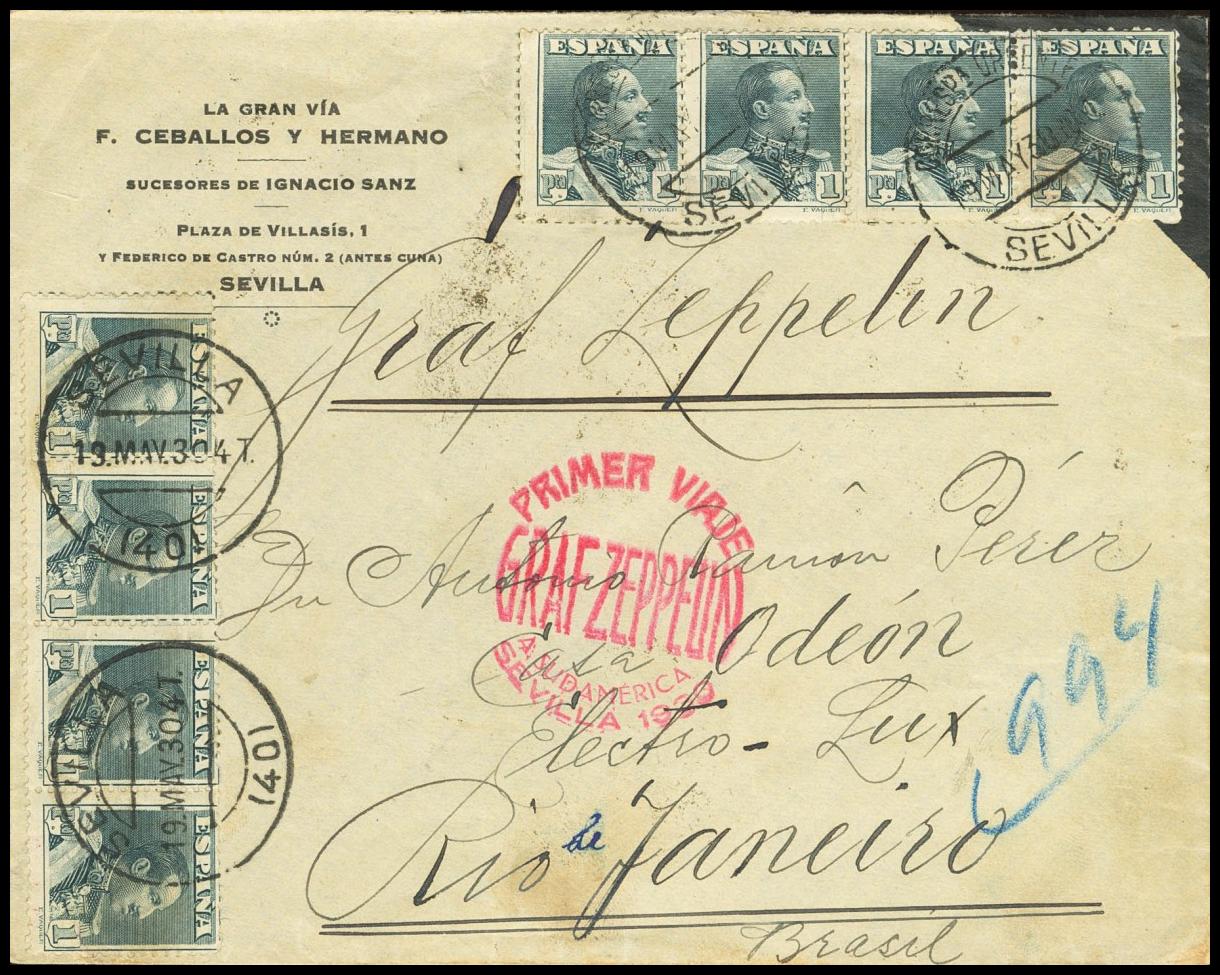 LA GRAN VÍA
F. CEBALLOS Y HERMANO
SUCESORES DE IGNACIO SANZ
PLAZA DE VILLASÍS, 1
Y FEDERICO DE CASTRO NÚM. 2 (ANTES CUNA)
SEVILLA
ESPAÑA ESPAÑA ESPAÑA ESPAÑA
Pta 1 Pta 1 Pta 1 Pta 1
E. VAQUER E. VAQUER E. VAQUER
19 MAY 30
SEVILLA
SEVILLA
Graf Zeppelin
ESPAÑA
Pta 1
SEVILLA
19.MAY.30 4T.
1401
ESPAÑA
Pta 1
E. VAQUER
PRIMER VIAJE
GRAF ZEPPELIN
A SUDAMERICA
SEVILLA 1930
Dn Antonio Ramón Pérez
Casa Odeón
Electro-Lux
Rio de Janeiro
Brasil
994
ESPAÑA
Pta 1
E. VAQUER
SEVILLA
19.MAY.30 4T.
1401
ESPAÑA
Pta 1
E. VAQUER